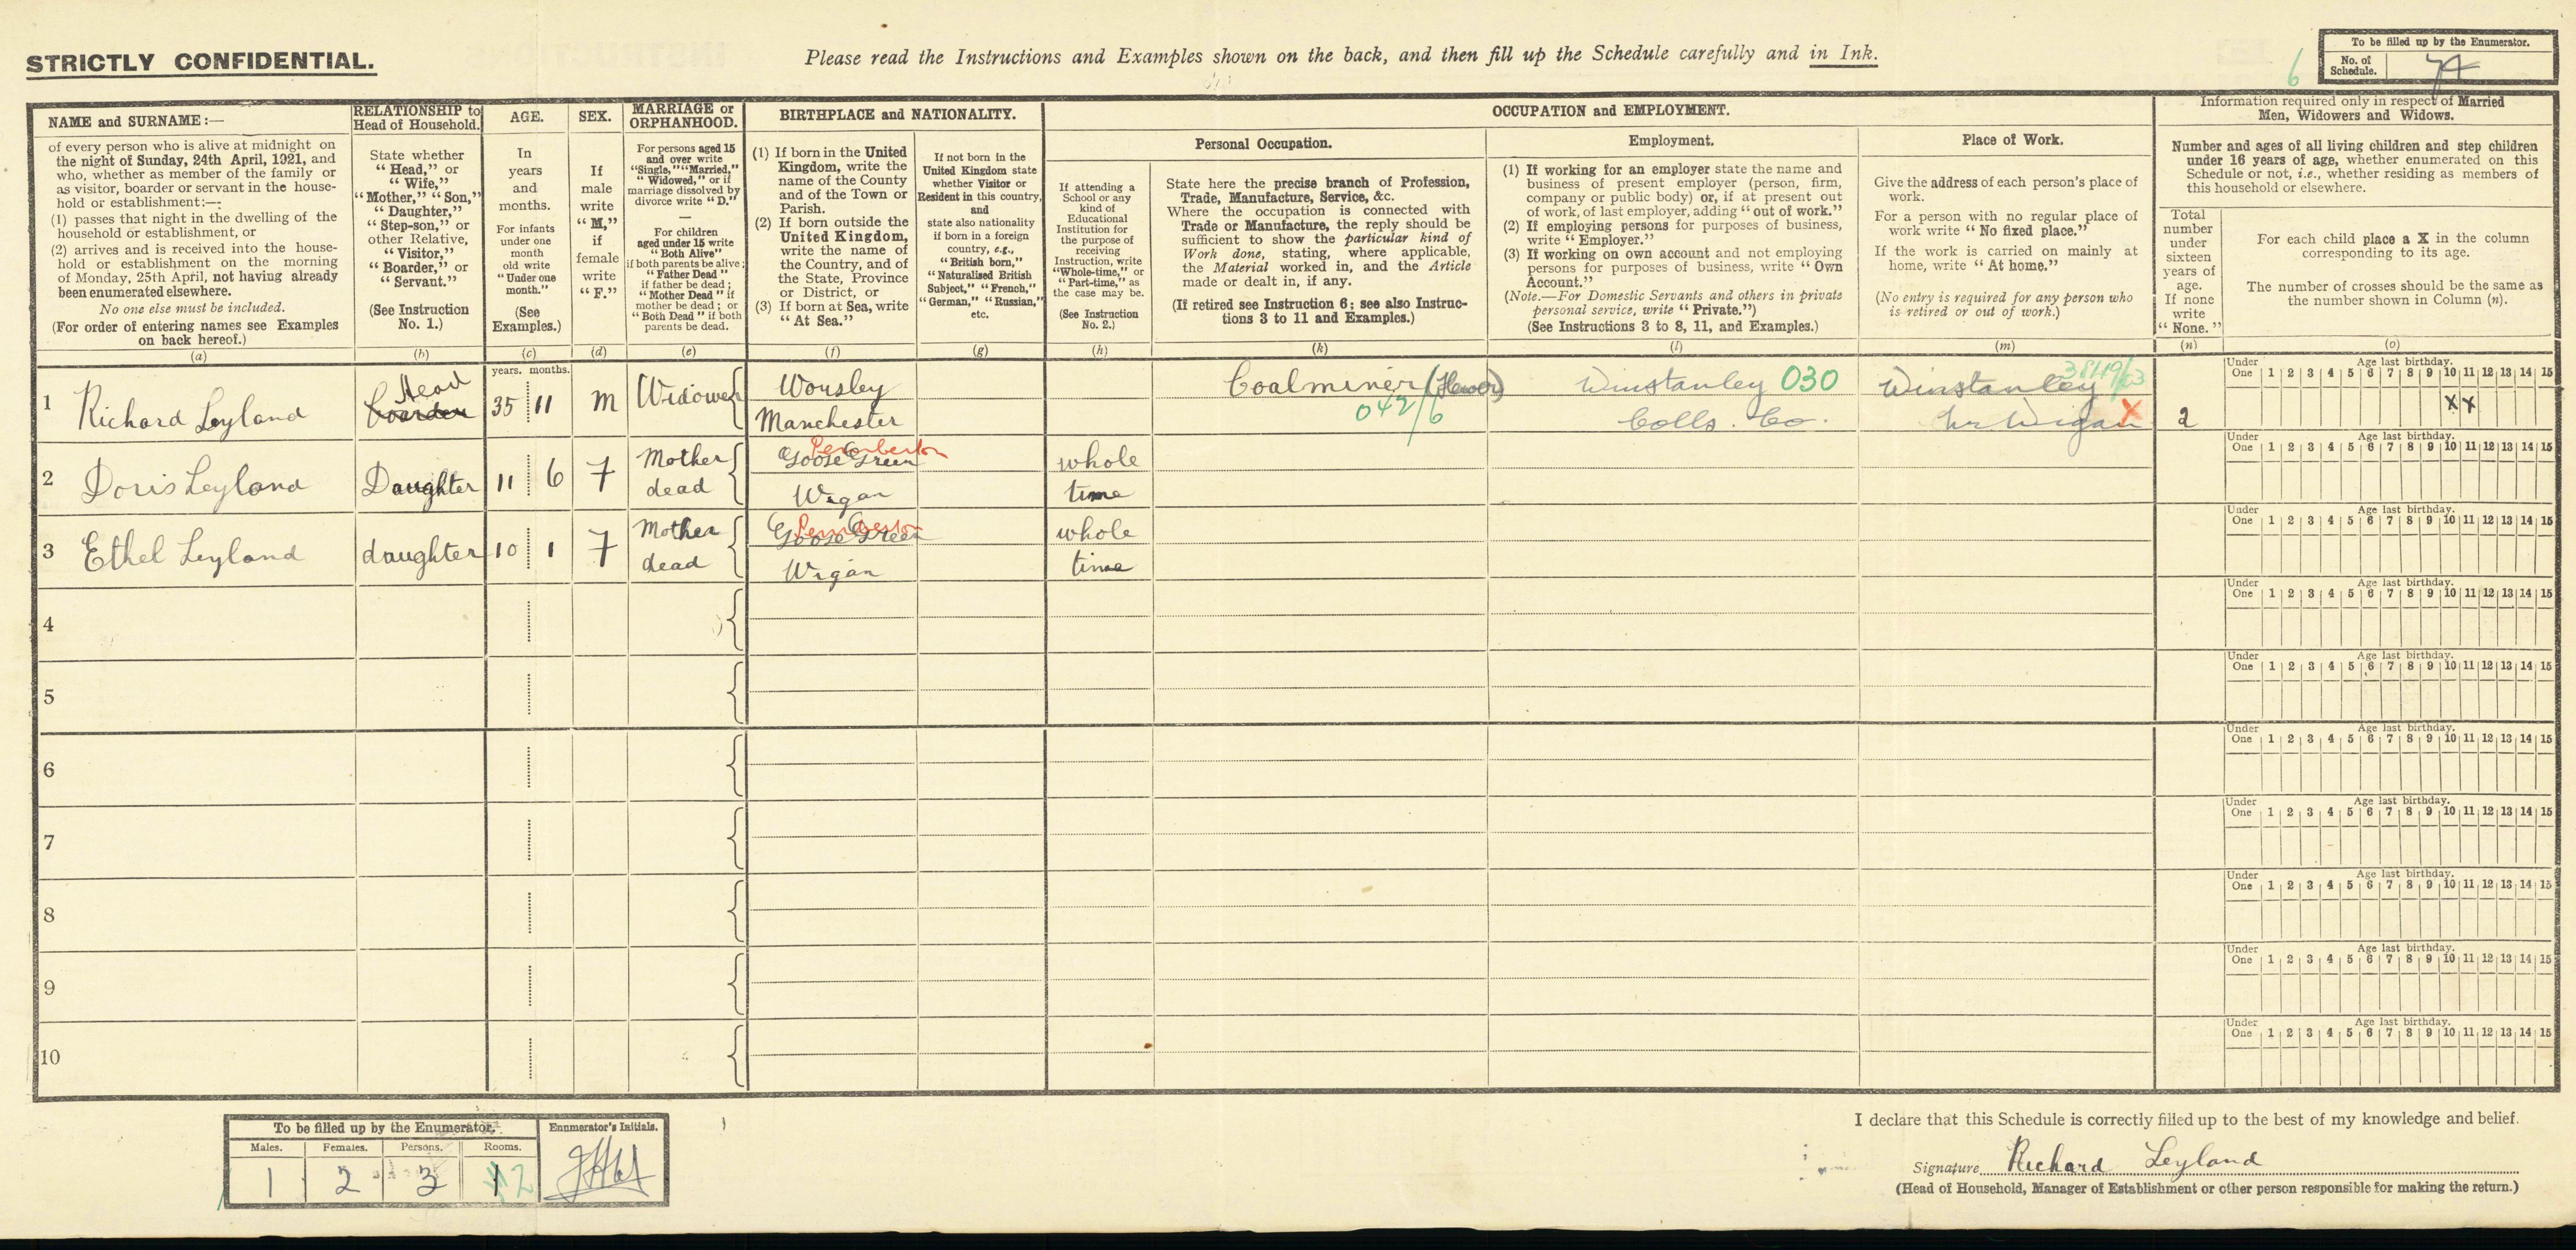 STRICTLY CONFIDENTIAL.
Please read the Instructions and Examples shown on the back, and then fill up the Schedule carefully and in Ink.
6
To be filled up by the Enumerator.
No. of Schedule. 74
NAME and SURNAME:—
of every person who is alive at midnight on
the night of Sunday, 24th April, 1921, and
who, whether as member of the family or
as visitor, boarder or servant in the house-
hold or establishment:—
(1) passes that night in the dwelling of the
household or establishment, or
(2) arrives and is received into the house-
hold or establishment on the morning
of Monday, 25th April, not having already
been enumerated elsewhere.
No one else must be included.
(For order of entering names see Examples
on back hereof.)
(a)
RELATIONSHIP to
Head of Household.
State whether
"Head," or
"Wife,"
"Mother," "Son,"
"Daughter,"
"Step-son," or
other Relative,
"Visitor,"
"Boarder," or
"Servant."
(See Instruction
No. 1.)
(b)
AGE.
In
years
and
months.
For infants
under one
month
old write
"Under one
month."
(See
Examples.)
(c)
SEX.
If
male
write
"M,"
if
female
write
"F."
(d)
MARRIAGE or
ORPHANHOOD.
For persons aged 15
and over write
"Single," "Married,"
"Widowed," or if
marriage dissolved by
divorce write "D."
—
For children
aged under 15 write
"Both Alive"
if both parents be alive;
"Father Dead"
if father be dead;
"Mother Dead" if
mother be dead; or
"Both Dead" if both
parents be dead.
(e)
BIRTHPLACE and NATIONALITY.
(1) If born in the United
Kingdom, write the
name of the County
and of the Town or
Parish.
(2) If born outside the
United Kingdom,
write the name of
the Country, and of
the State, Province
or District, or
(3) If born at Sea, write
"At Sea."
(f)
If not born in the
United Kingdom state
whether Visitor or
Resident in this country,
and
state also nationality
if born in a foreign
country, e.g.,
"British born,"
"Naturalised British
Subject," "French,"
"German," "Russian,"
etc.
(g)
OCCUPATION and EMPLOYMENT.
Personal Occupation.
If attending a
School or any
kind of
Educational
Institution for
the purpose of
receiving
Instruction, write
"Whole-time," or
"Part-time," as
the case may be.
(See Instruction
No. 2.)
(h)
State here the precise branch of Profession,
Trade, Manufacture, Service, &c.
Where the occupation is connected with
Trade or Manufacture, the reply should be
sufficient to show the particular kind of
Work done, stating, where applicable,
the Material worked in, and the Article
made or dealt in, if any.
(If retired see Instruction 6; see also Instruc-
tions 3 to 11 and Examples.)
(k)
Employment.
(1) If working for an employer state the name and
business of present employer (person, firm,
company or public body) or, if at present out
of work, of last employer, adding "out of work."
(2) If employing persons for purposes of business,
write "Employer."
(3) If working on own account and not employing
persons for purposes of business, write "Own
Account."
(Note.—For Domestic Servants and others in private
personal service, write "Private.")
(See Instructions 3 to 8, 11, and Examples.)
(l)
Place of Work.
Give the address of each person's place of
work.
For a person with no regular place of
work write "No fixed place."
If the work is carried on mainly at
home, write "At home."
(No entry is required for any person who
is retired or out of work.)
(m)
Information required only in respect of Married
Men, Widowers and Widows.
Number and ages of all living children and step children
under 16 years of age, whether enumerated on this
Schedule or not, i.e., whether residing as members of
this household or elsewhere.
Total
number
under
sixteen
years of
age.
If none
write
"None."
(n)
For each child place a X in the column
corresponding to its age.
The number of crosses should be the same as
the number shown in Column (n).
(o)
years. months.
1 Richard Leyland boarder Head 35 11 M Widower Worsley Manchester Coalminer (Hewer) 042/6 Winstanley 030 Colls. Co. Winstanley Nr Wigan X 2 X X
Under One 1 2 3 4 5 6 7 8 9 10 11 12 13 14 15
Age last birthday.
2 Doris Leyland Daughter 11 6 F Mother dead Goose Green Pemberton Wigan whole time
Under One 1 2 3 4 5 6 7 8 9 10 11 12 13 14 15
Age last birthday.
3 Ethel Leyland daughter 10 1 F Mother dead Goose Green Pemberton Wigan whole time
Under One 1 2 3 4 5 6 7 8 9 10 11 12 13 14 15
Age last birthday.
4
Under One 1 2 3 4 5 6 7 8 9 10 11 12 13 14 15
Age last birthday.
5
Under One 1 2 3 4 5 6 7 8 9 10 11 12 13 14 15
Age last birthday.
6
Under One 1 2 3 4 5 6 7 8 9 10 11 12 13 14 15
Age last birthday.
7
Under One 1 2 3 4 5 6 7 8 9 10 11 12 13 14 15
Age last birthday.
8
Under One 1 2 3 4 5 6 7 8 9 10 11 12 13 14 15
Age last birthday.
9
Under One 1 2 3 4 5 6 7 8 9 10 11 12 13 14 15
Age last birthday.
10
Under One 1 2 3 4 5 6 7 8 9 10 11 12 13 14 15
Age last birthday.
To be filled up by the Enumerator.
Males. Females. Persons. Rooms.
1 2 3
Enumerator's Initials.
I declare that this Schedule is correctly filled up to the best of my knowledge and belief.
Signature Richard Leyland
(Head of Household, Manager of Establishment or other person responsible for making the return.)